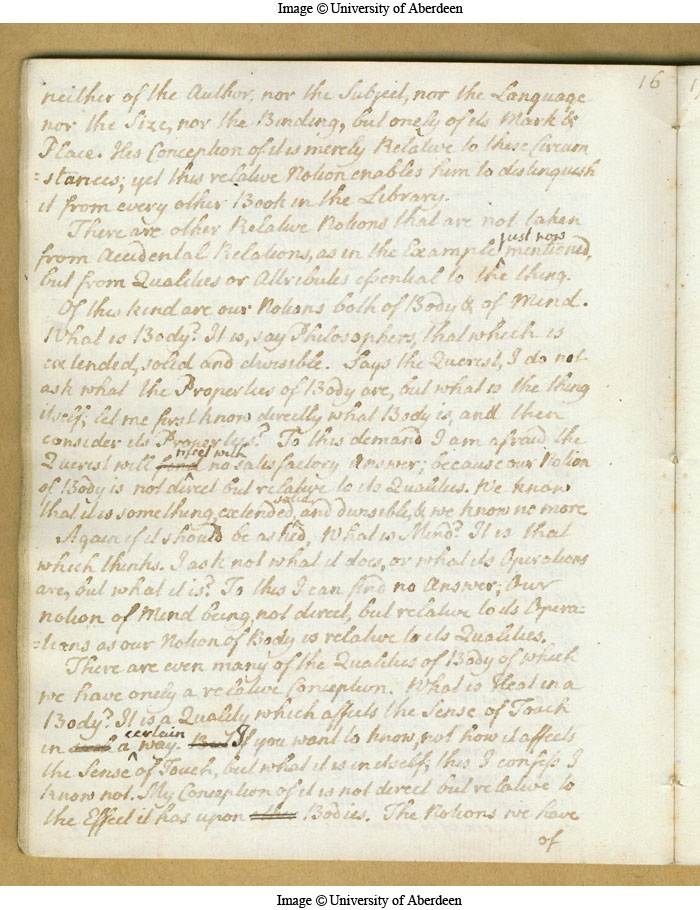 Image © University of Aberdeen
16
neither of the Author, nor the Subject, nor the Language
nor the Size, nor the Binding, but onely of its Mark &
Place. His Conception of it is merely Relative to these Circum
=stances; yet this relative Notion enables him to distinguish
it from every other Book in the Library.
There are other Relative Notions that are not taken
from Accidental Relations, as in the Example just now mentioned,
but from Qualities or Attributes essential to the thing.
Of this kind are our Notions both of Body & of Mind.
What is Body? It is, say Philosophers, that which is
extended, solid and divisible. Says the Querist, I do not
ask what the Properties of Body are, but what is the thing
itself; let me first know directly what Body is, and then
consider its Propertys? To this demand I am afraid the
Querist will find meet with no satisfactory Answer; because our Notion
of Body is not direct but relative to its Qualities. We know
that it is something extended, solid, and divisible, & we know no more
Again if it should be asked, What is Mind? It is that
which thinks. I ask not what it does, or what its Operations
are, but what it is? To this I can find no Answer; Our
notion of Mind being, not direct, but relative to its Opera=
=tions as our Notion of Body is relative to its Qualities.
There are even many of the Qualities of Body of which
we have onely a relative Conception. What is Heat in a
Body? It is a Quality which affects the Sense of Touch
in a certain way. If you want to know, not how it affects
the Sense of Touch, but what it is in itself; this I confess I
know not. My Conception of it is not direct but relative to
the Effect it has upon the Bodies. The Notions we have
of
Image © University of Aberdeen